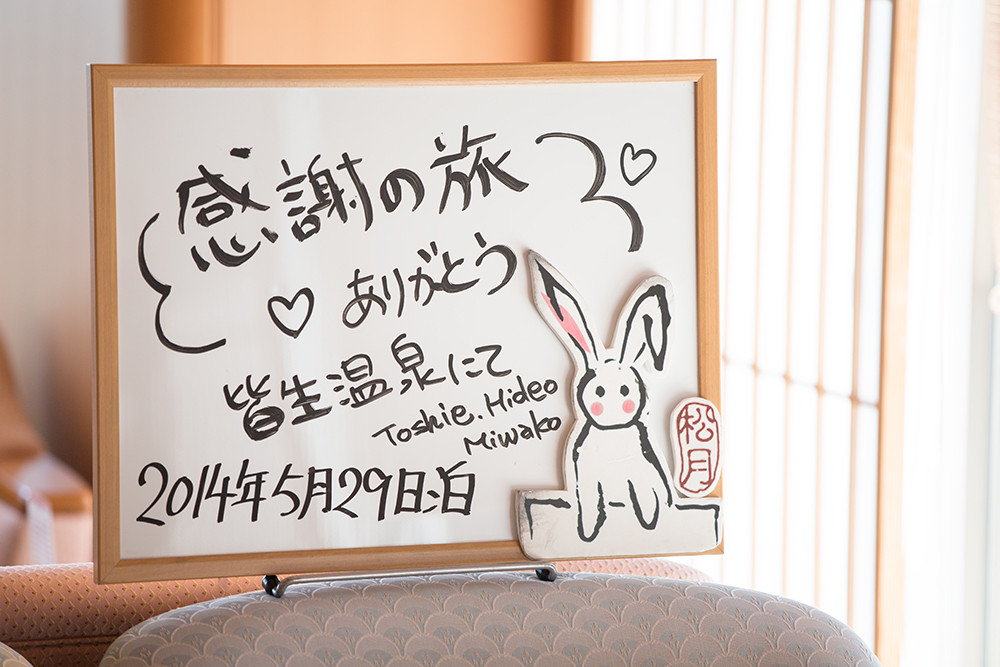 感謝の旅
ありがとう
皆生温泉にて
Toshie. Hideo
Miwako
2014年5月29日:泊
松月